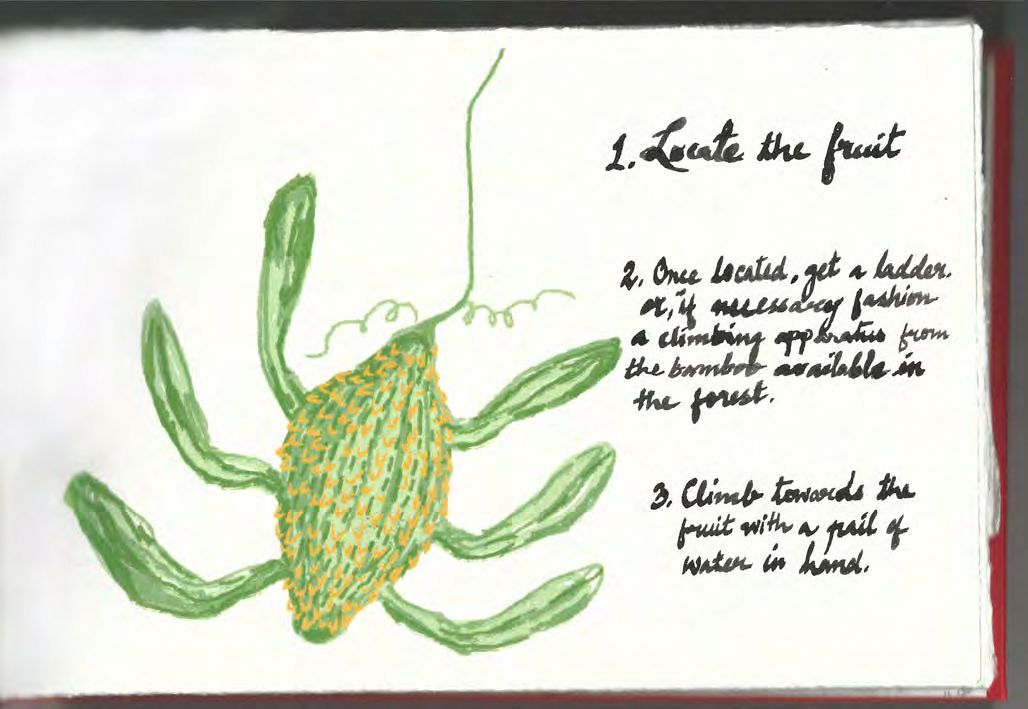 1. Locate the fruit
2. Once located, get a ladder.
or, if necessary fashion
a climbing apparatus from
the bamboo available in
the forest.
3. Climb towards the
fruit with a pail of
water in hand.